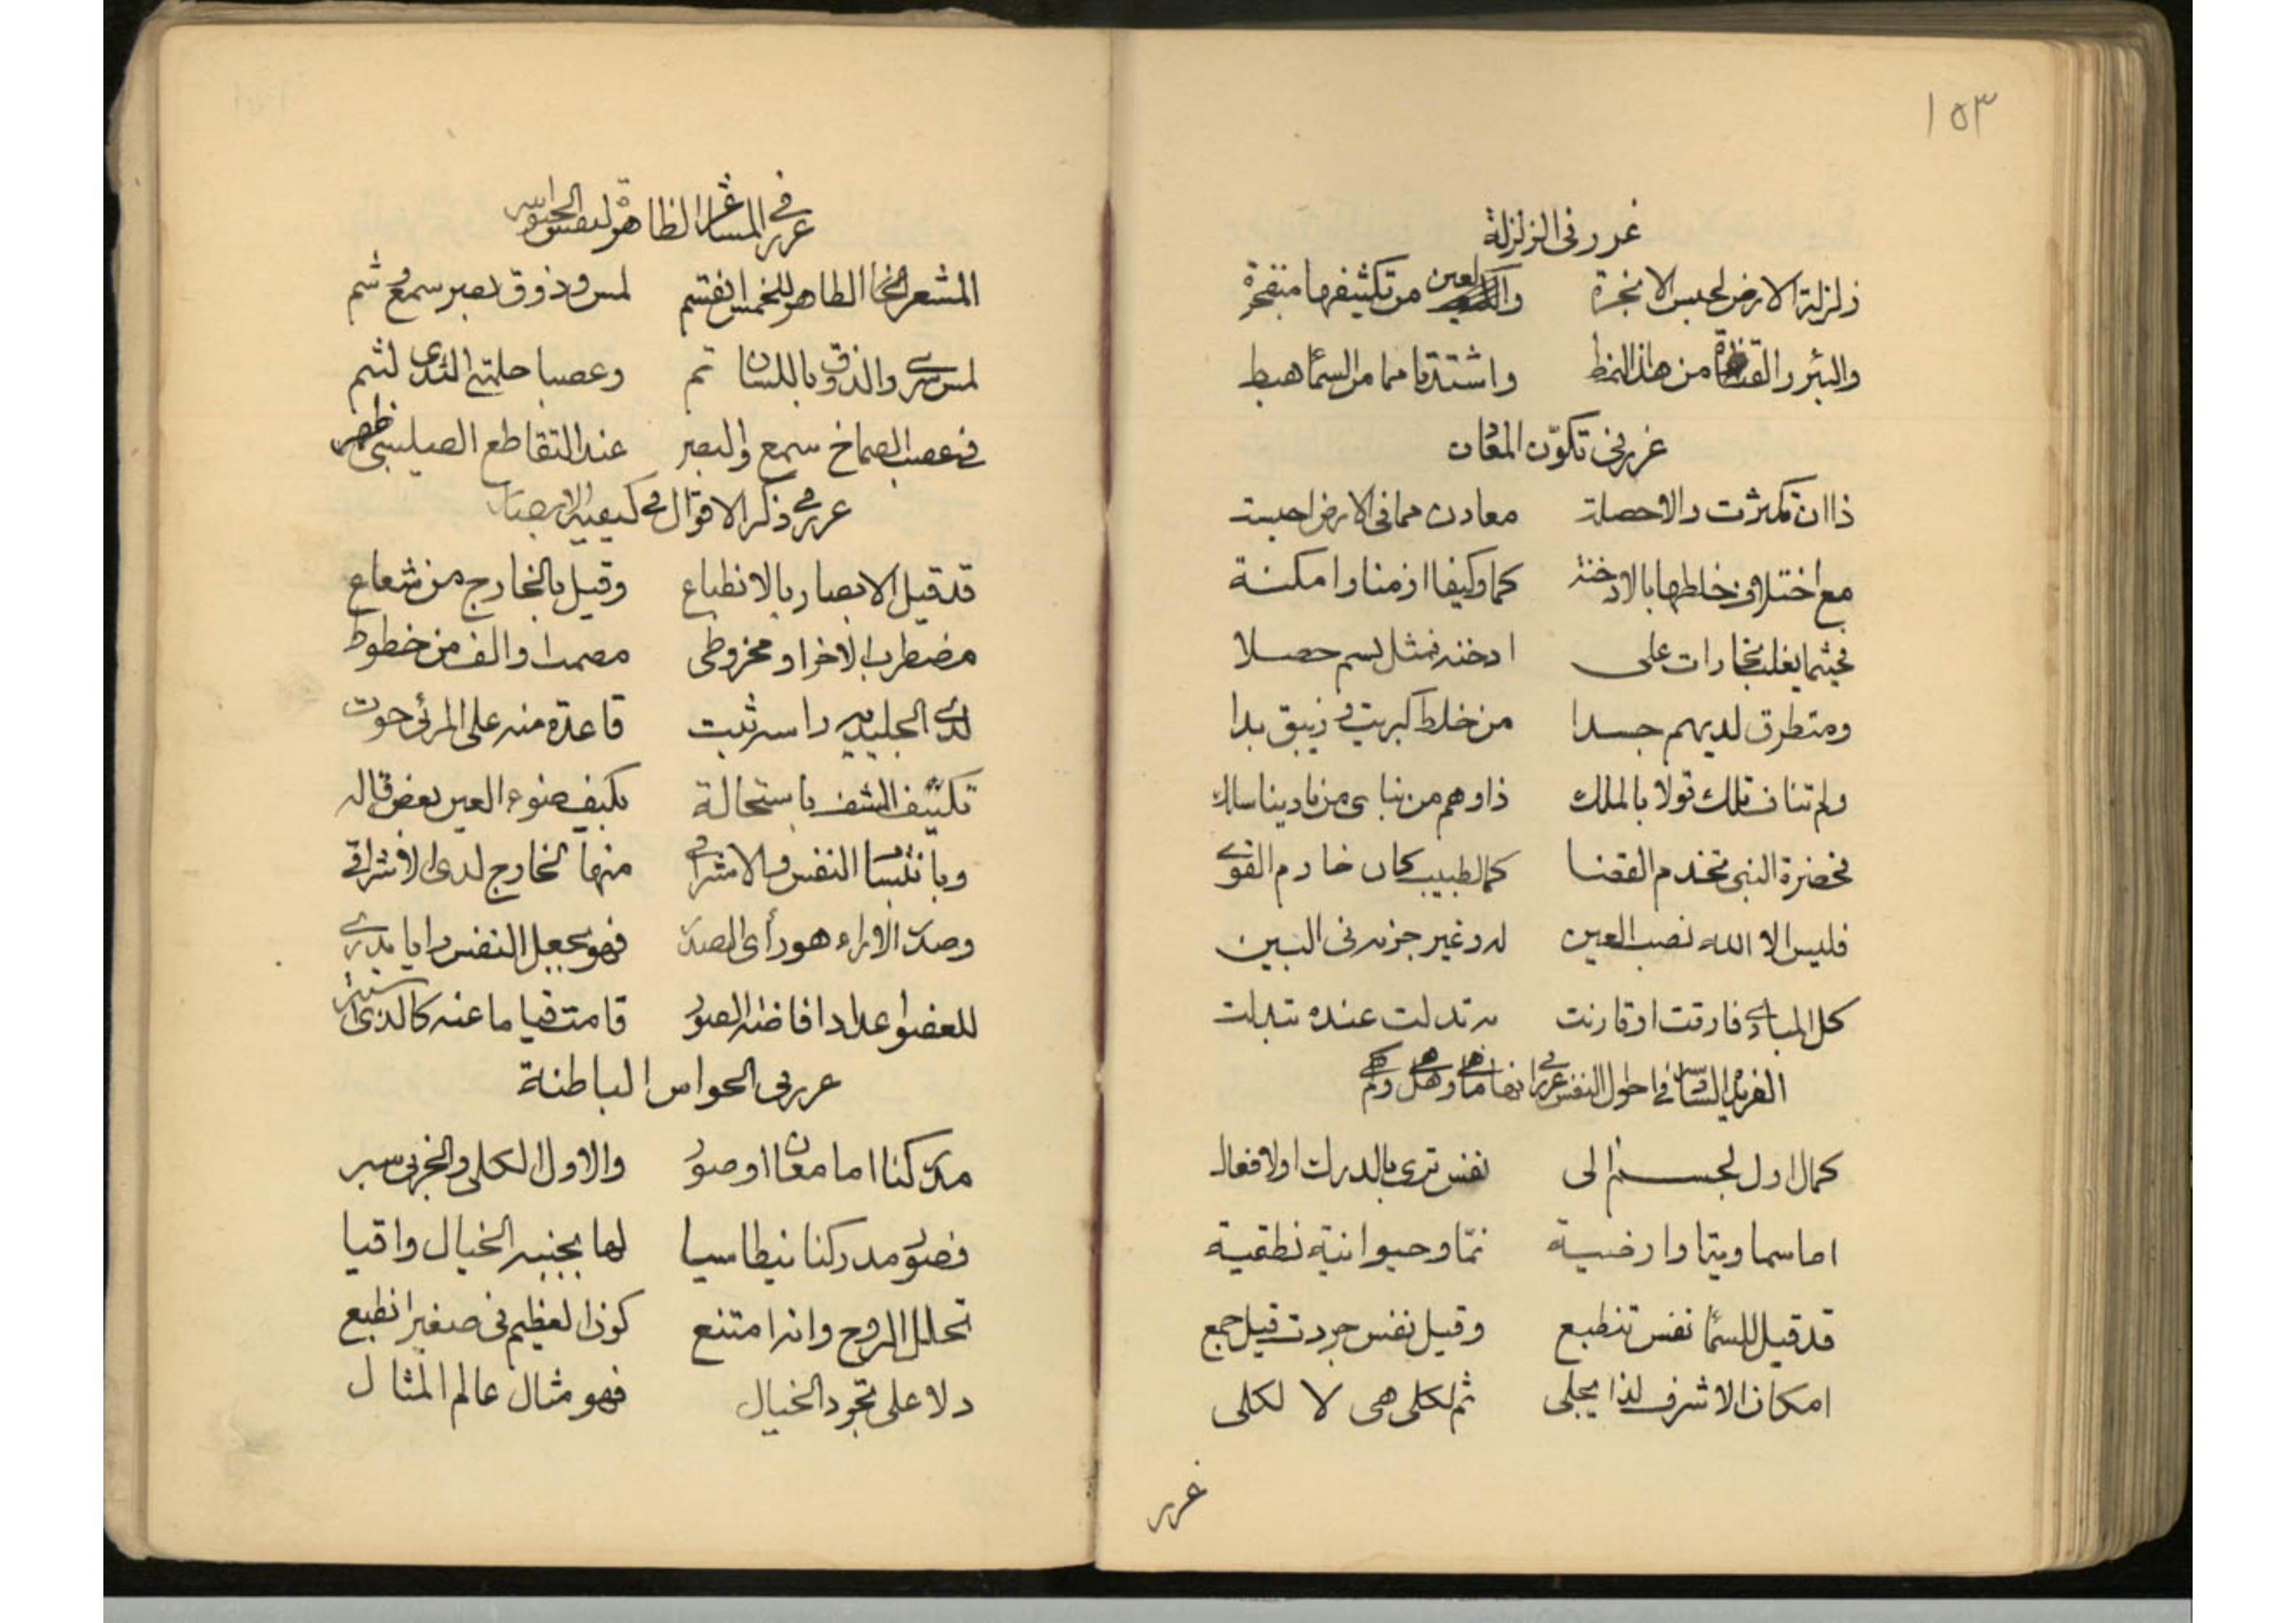 ١٥٣
غرر فی الزلزلة
زلزلة الارض لحبس الابخرة والعین من تکثیفها منفجرة
والبئر والقناة من هذا النمط واشتدتا مما من السماء هبط
غرر فی تکوّن المعادن
ذا ان تکثرت والا حصلت معادن مما فی الارض احتبست
مع اختلاف خلطها بالادخنة کما وکیفا ازمنا وامکنة
فحیثما یغلب بخارات علی ادخنة فمثل یشم حصلا
ومتطرق لدیهم جسدا من خلط کبریت وزیبق بدا
ولم تناف تلک قولا بالملک ذا وهم من بنا ی من نادینا سلک
فحضرة النبی تخدم القضا کما لطبیب کان خادم القوی
فلیس الا الله نصب العین له وغیر جزبه فی البین
کل المبادی فارقت او قارنت به تدلت عنده تبدلت
الفریدة السادسة فی احوال النفس غرر فی انها ما هی وهل هی وکم هی
کمال اول لجسم الی نفس تری بالدرک او لافعال
اما سماویة او ارضیة نمّا وحیوانیة نطقیة
قد قیل للسماء نفس تنطبع وقیل نفس جردت قیل جمع
امکان الاشرف لذا یجلی ثم لکلی هی لا لکلی
غرر
غرر فی المشاعر الظاهرة لنفس الحیوانیة
المشعر الظاهر للخمس انقسم لمس وذوق بصر سمع وشم
لمس سری والذوق باللسان تم وعصبا حلمتی الثدی لشم
فی عصب الصماخ سمع والبصر عند التقاطع الصلیبی ظهر
غرر فی ذکر الاقوال فی کیفیة الابصار
قد قیل الابصار بالانطباع وقیل بالخارج من شعاع
مضطرب الآخر او مخروطی مصمت او الف من خطوط
لدی الجلیدیة راسه ثبت قاعدة منه علی المرئی حوت
تکیّف المشف باستحالة بکیف ضوء العین بعض قاله
وبانتساب النفس والاشراق منها لخارج لدی الاشراقی
وصدر الآراء هو رأی الصدر فهو بجعل النفس رایا یدری
للعضو اعداد افاضة الصور قامت قیاما عنه کالذی استتر
غرر فی الحواس الباطنة
مدرکنا اما معان او صور والاول الکلی والجزئی سبر
فصور مدرکنا بنطاسیا لها بجنبه الخیال واقیا
تحلل الروح وانه امتنع کون العظیم فی صغیر انطبع
دلا علی تجرد الخیال فهو مثال عالم المثال